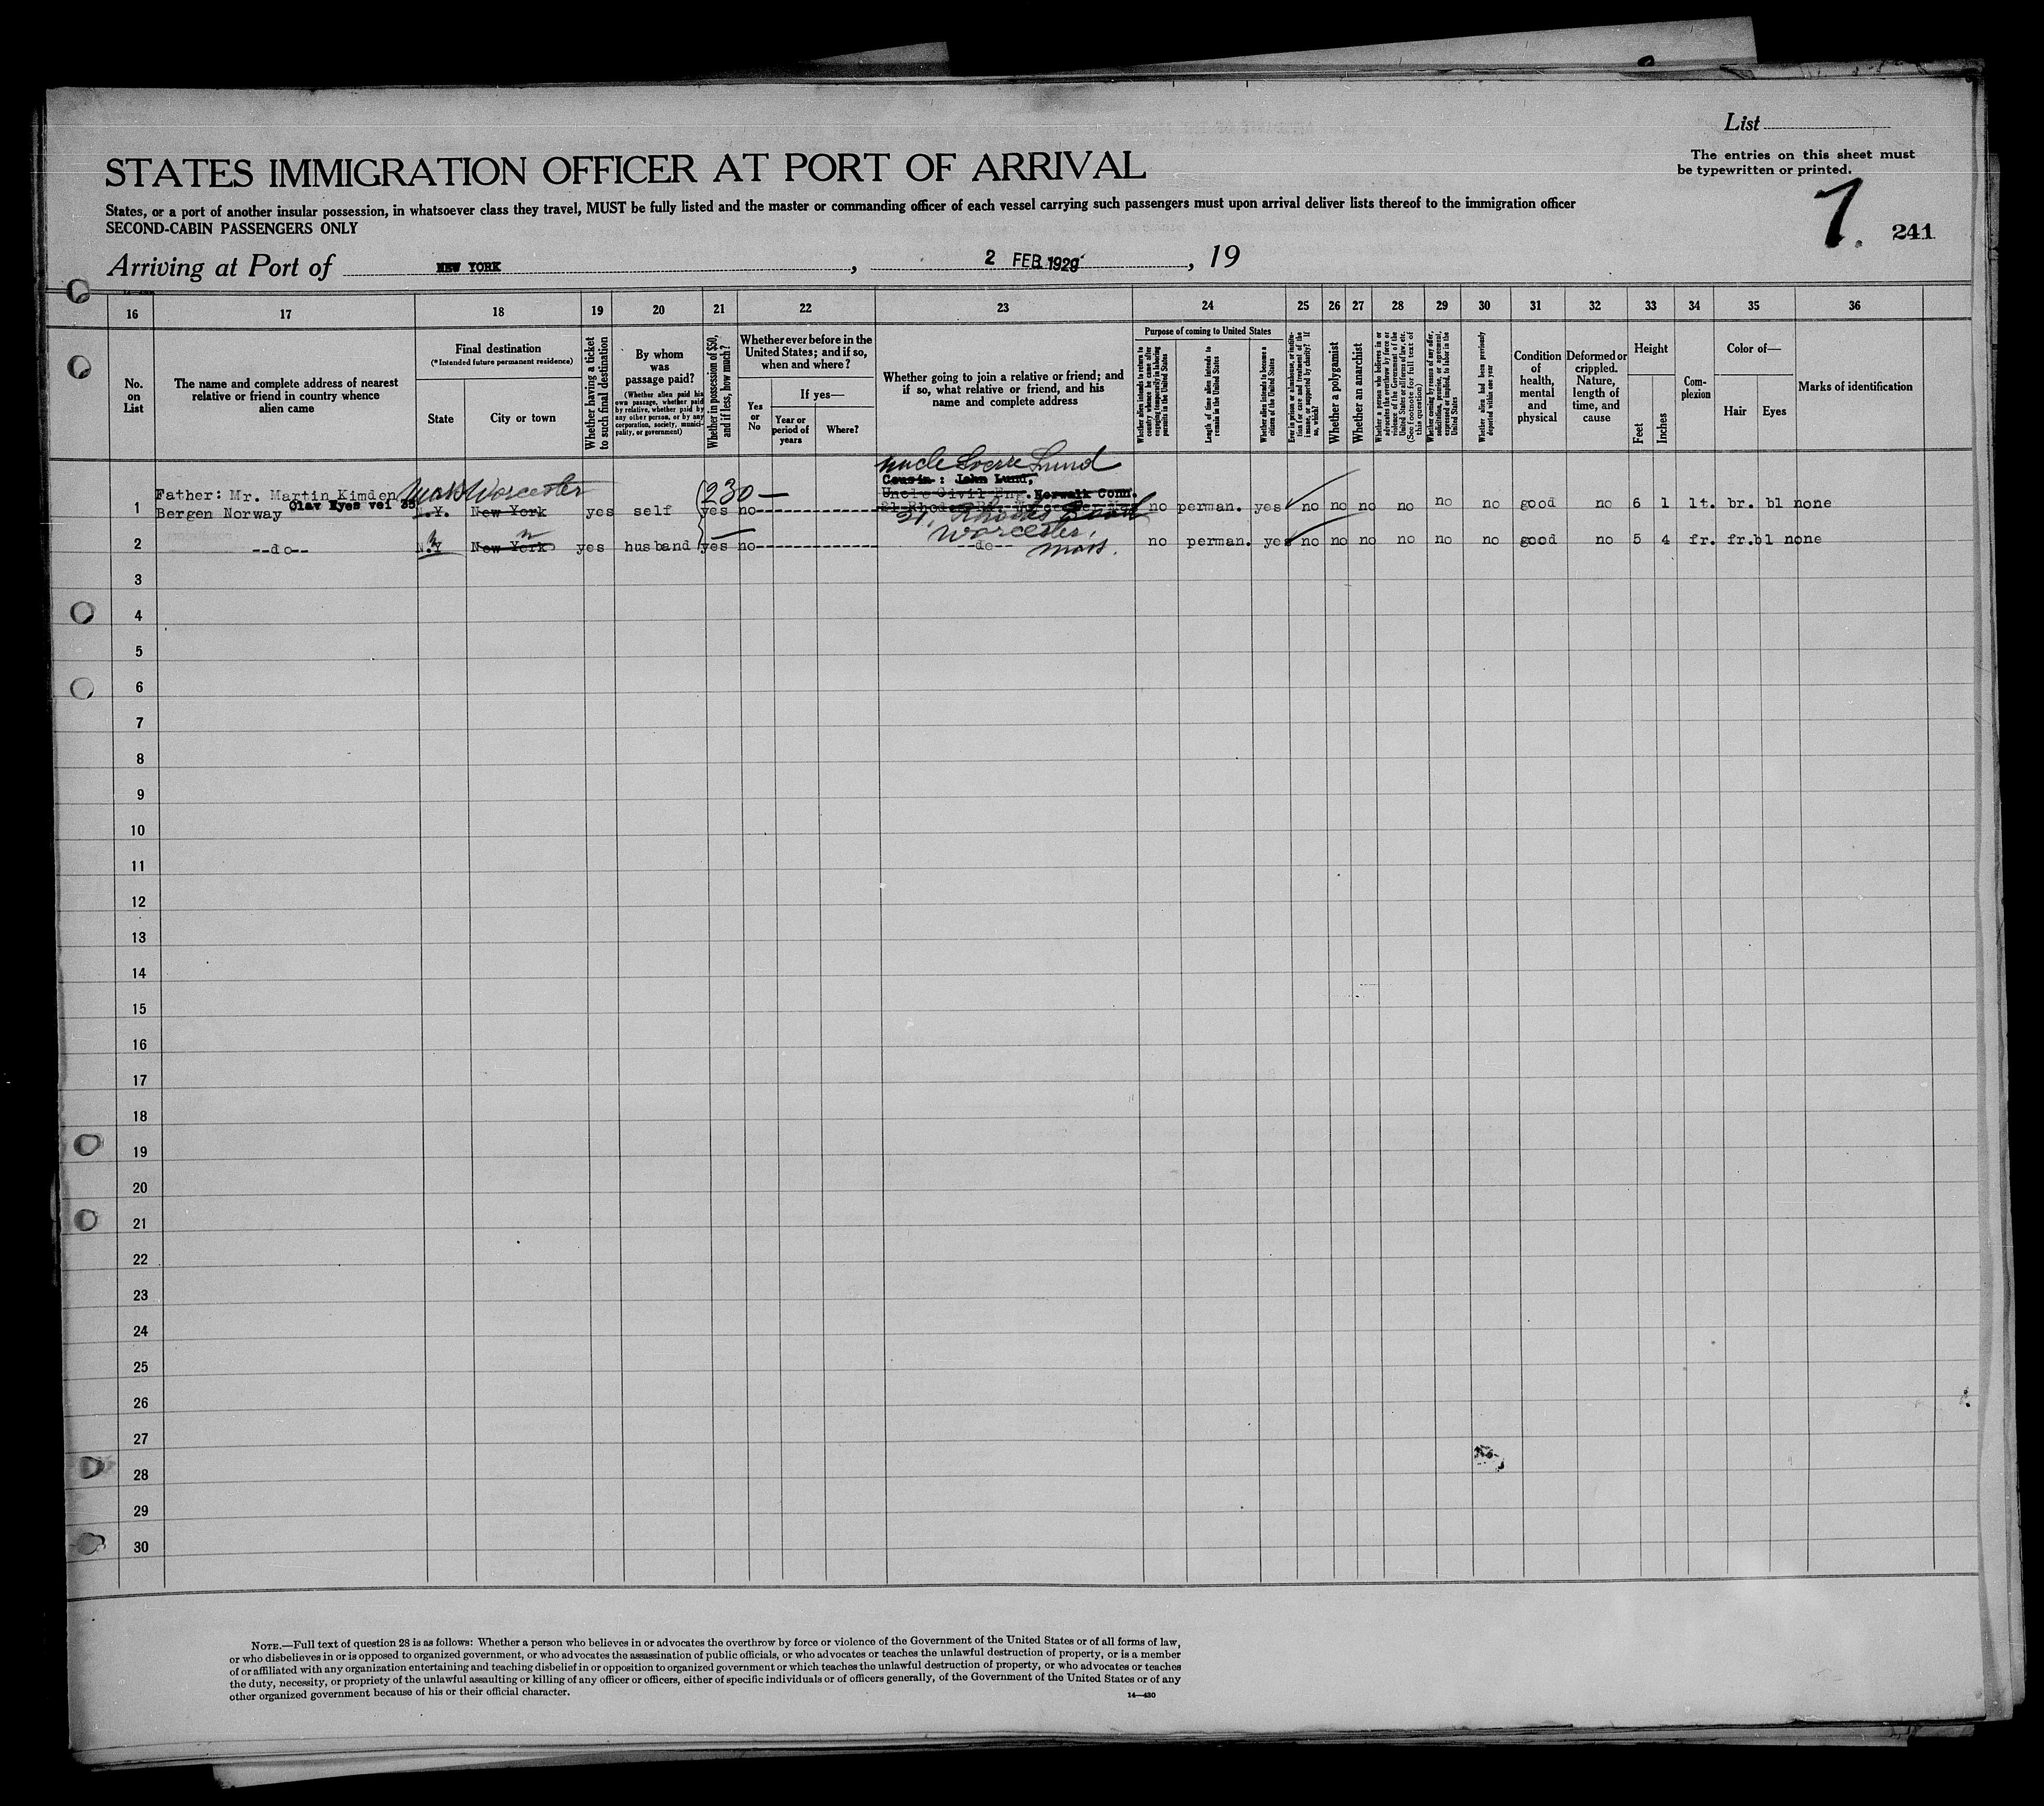 List
The entries on this sheet must
be typewritten or printed.
7.
241
STATES IMMIGRATION OFFICER AT PORT OF ARRIVAL
States, or a port of another insular possession, in whatsoever class they travel, MUST be fully listed and the master or commanding officer of each vessel carrying such passengers must upon arrival deliver lists thereof to the immigration officer
SECOND-CABIN PASSENGERS ONLY
Arriving at Port of NEW YORK, 2 FEB 1929, 19
16 17 18 19 20 21 22 23 24 25 26 27 28 29 30 31 32 33 34 35 36
No.
on
List
The name and complete address of nearest
relative or friend in country whence
alien came
Final destination
(*Intended future permanent residence)
State
City or town
Whether having a ticket
to such final destination
By whom
was
passage paid?
(Whether alien paid his
own passage, whether paid
by relative, whether paid by
any other person, or by any
corporation, society, munici-
pality, or government)
Whether in possession of $50,
and if less, how much?
Whether ever before in the
United States; and if so,
when and where?
Yes
or
No
If yes—
Year or
period of
years
Where?
Whether going to join a relative or friend; and
if so, what relative or friend, and his
name and complete address
Purpose of coming to United States
Whether alien intends to return to
country whence he came after
engaging temporarily in laboring
pursuits in the United States
Length of time alien intends to
remain in the United States
Whether alien intends to become a
citizen of the United States
Ever in prison or almshouse, or institu-
tion for care and treatment of the
insane, or supported by charity? If
so, which?
Whether a polygamist
Whether an anarchist
Whether a person who believes in or
advocates the overthrow by force or
violence of the Government of the
United States or all forms of law, etc.
(See footnote for full text of
this question)
Whether coming by reason of any offer,
solicitation, promise, or agreement,
expressed or implied, to labor in the
United States
Whether alien had been previously
deported within one year
Condition
of
health,
mental
and
physical
Deformed or
crippled.
Nature,
length of
time, and
cause
Height
Feet
Inches
Com-
plexion
Color of—
Hair
Eyes
Marks of identification
uncle Lund
Cousin: John Lund,
Mass Worcester
230—
Father: Mr. Martin Kimden
Uncle Civil Eng. Norwalk Conn.
1 Bergen Norway Olav Kyes vei 35 N.Y. New York yes self yes no no perman. yes no no no no no no good no 6 1 lt. br. bl none
21, Rhodes Road
Worcester,
Mass.
2 --do-- N.Y New York yes husband yes no --do-- no perman. yes no no no no no no good no 5 4 fr. fr. bl none
3
4
5
6
7
8
9
10
11
12
13
14
15
16
17
18
19
20
21
22
23
24
25
26
27
28
29
30
NOTE.—Full text of question 28 is as follows: Whether a person who believes in or advocates the overthrow by force or violence of the Government of the United States or of all forms of law,
or who disbelieves in or is opposed to organized government, or who advocates the assassination of public officials, or who advocates or teaches the unlawful destruction of property, or is a member
of or affiliated with any organization entertaining and teaching disbelief in or opposition to organized government or which teaches the unlawful destruction of property, or who advocates or teaches
the duty, necessity, or propriety of the unlawful assaulting or killing of any officer or officers, either of specific individuals or of officers generally, of the Government of the United States or of any
other organized government because of his or their official character.
14—430